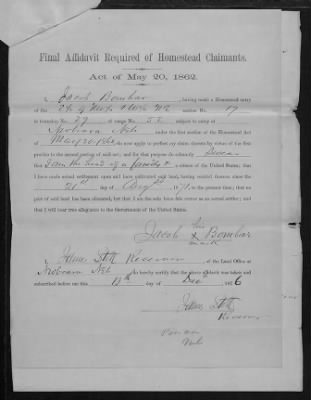 Final Affidavit Required of Homestead Claimants.
Act of May 20, 1862.
I, Jacob Bombar, having made a Homestead entry
of the E½ of NW¼ & W½ NE section No. 17
in township No. 29 of range No. 5 E subject to entry at
Niobrara Neb under the first section of the Homestead Act
of May 20 1862, do now apply to perfect my claim thereto by virtue of the first
proviso to the second section of said act; and for that purpose do solemnly Swear
that I am the head of a family & citizen of the United States; that
I have made actual settlement upon and have cultivated said land, having resided thereon since the
21st day of Augt, 1871, to the present time; that no
part of said land has been alienated, but that I am the sole bona fide owner as an actual settler; and
that I will bear true allegiance to the Government of the United States.
Jacob his X Bombar
mark
I, James Stott Receiver of the Land Office at
Niobrara Neb do hereby certify that the above affidavit was taken and
subscribed before me this 13th day of Dec 1876
James Stott
Receiver